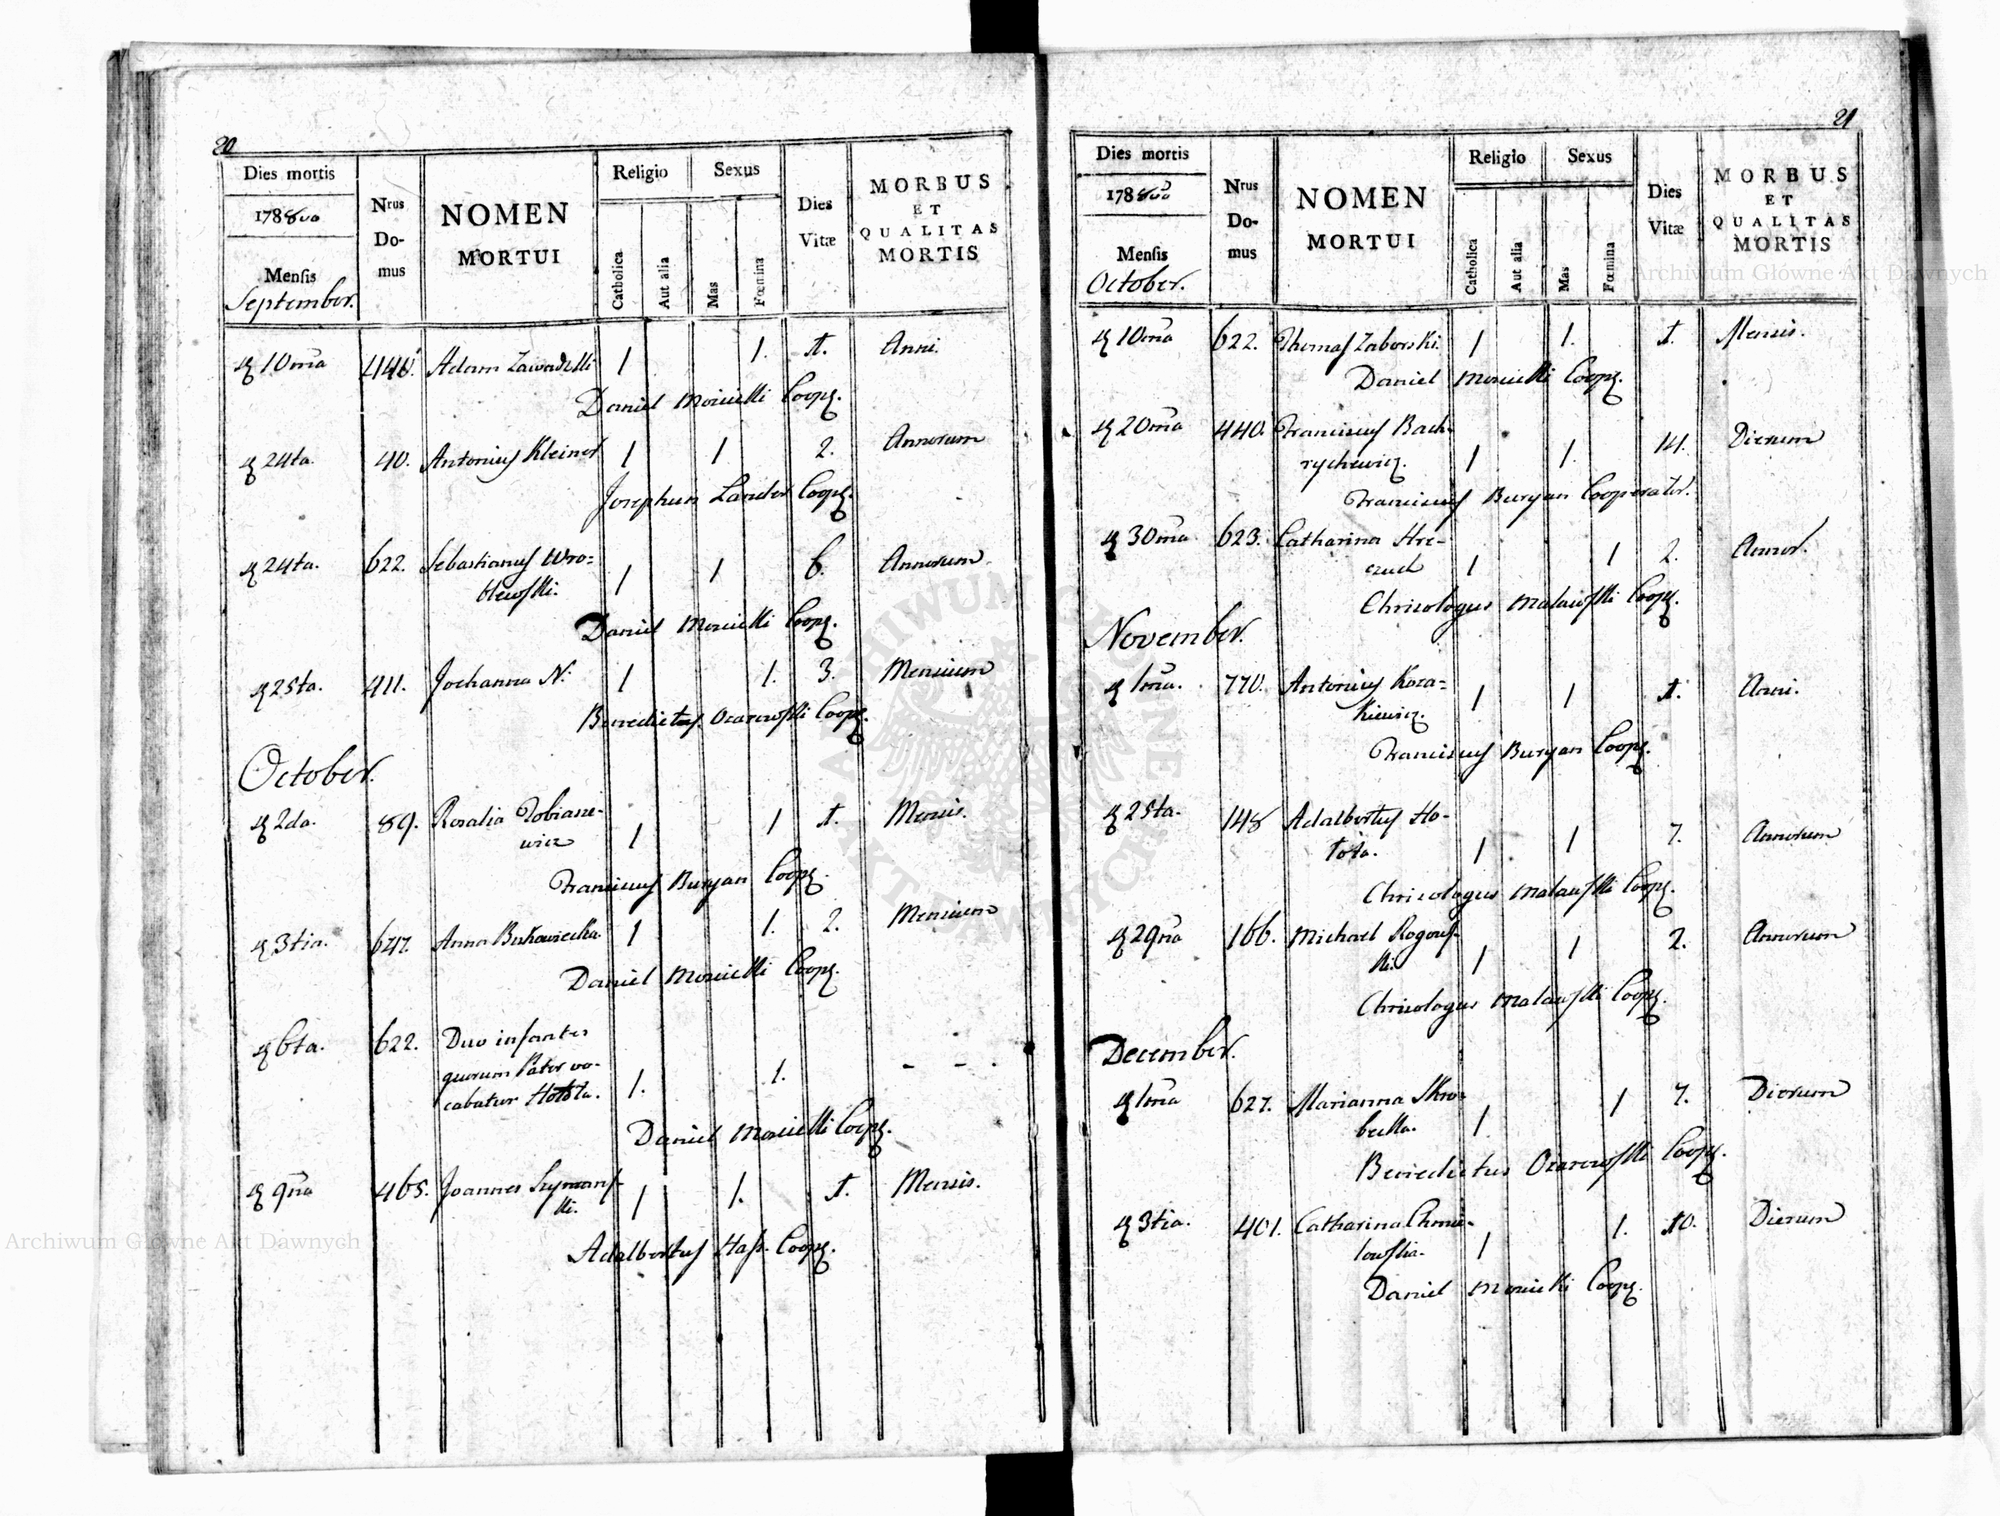 20
Dies mortis
1788vo
Mensis
September.
Nrus
Do-
mus
NOMEN
MORTUI
Religio
Catholica
Aut alia
Sexus
Mas
Fœmina
Dies
Vitæ
MORBUS
ET
QUALITAS
MORTIS
10ma 440. Adam Zawadzki 1 1. 1. Anni.
Daniel Morucki Coop.
24ta. 40. Antonius Kleiner 1 1 2. Annorum
Josephus Lander Coop.
24ta. 622. Sebastianus Wro=
blewski. 1 1 6. Annorum
Daniel Morucki Coop.
25ta. 411. Johanna N: 1 1. 3. Mensium
Benedictus Ozarowski Coop.
October.
2da. 89. Rosalia Tobiasie-
wicz 1 1 1. Mensis.
Franciscus Buryan Coop.
3tia. 647. Anna Bukowiecka 1 1. 2. Mensium
Daniel Morucki Coop.
6ta. 622. Duo infantes
quorum Pater vo-
cabatur Hotota. 1. 1. - - -
Daniel Morucki Coop.
9na 465. Joannes Szymans-
ki. 1 1. 1. Mensis.
Adalbertus Hass. Coop.
21
Dies mortis
1788vo
Mensis
October.
Nrus
Do-
mus
NOMEN
MORTUI
Religio
Catholica
Aut alia
Sexus
Mas
Fœmina
Dies
Vitæ
MORBUS
ET
QUALITAS
MORTIS
10ma 622. Thomas Zaborski. 1 1. 1. Mensis.
Daniel Morucki Coop.
20ma 440. Franciscus Bach-
rychewicz. 1 1. 14. Dierum
Franciscus Buryan Cooperator.
30ma 623. Catharina Hre-
czuch 1 1 2. Annor.
Chrisologus Malawski Coop.
November.
1ma. 770. Antonius Koza=
kiewicz. 1 1 1. Anni.
Franciscus Buryan Coop.
25ta. 148 Adalbertus Ho-
tota. 1 1 7. Annorum
Chrisologus Malawski Coop.
29na 166. Michael Rogows-
ki. 1 1 2. Annorum
Chrisologus Malawski Coop.
December.
1ma 627. Marianna Skro-
becka. 1 1 7. Dierum
Benedictus Ozarowski Coop.
3tia. 401. Catharina Chmie-
lowska. 1 1. 10. Dierum
Daniel Morucki Coop.
Archiwum Główne Akt Dawnych
Archiwum Główne Akt Dawnych
ARCHIWUM GŁÓWNE AKT DAWNYCH